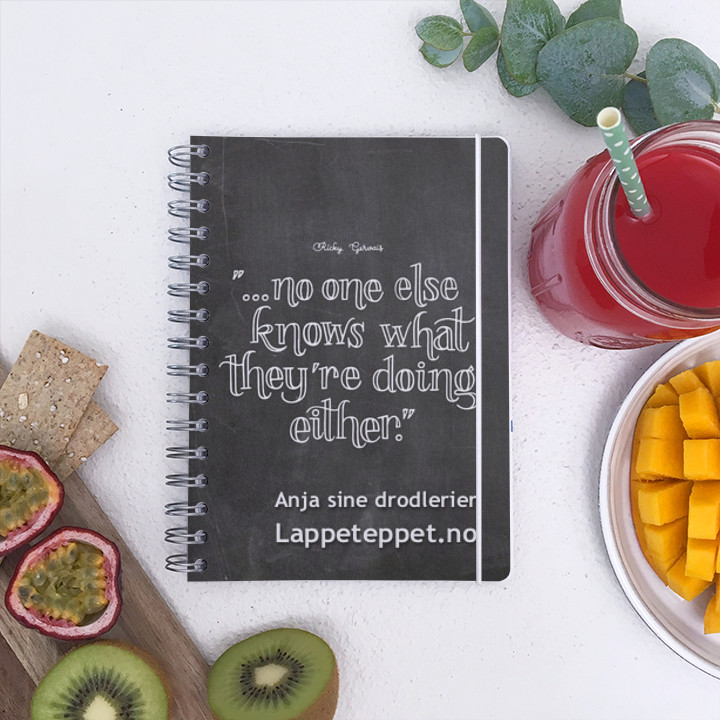 Ricky Gervais
"...no one else
knows what
they're doing
either."
Anja sine drodlerier
Lappeteppet.no